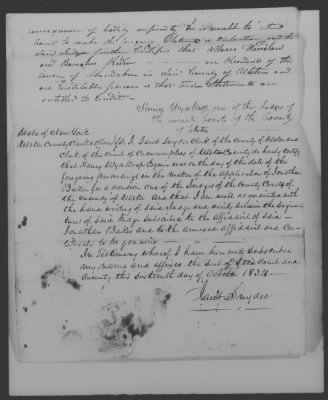 consequence of bodily infirmity he is unable to attend
Court to make the foregoing Statement &c Declaration and the
said Judge further Certifies that Moses
and Benajah - are Residents of the
Town of Shandaken in said County of Ulster and
are Creditable persons & that their Statements are
entitled to Credit -
Henry Wynkoop one of the Judges of
the County Courts of the County
of Ulster
State of New York
Ulster County Clerks Office I, Jacob Snyder Clerk of the County of Ulster and
Clerk of the Court of Common pleas of Ulster County Do hereby Certify
that Henry Wynkoop Esquire was on the day of the date of the
foregoing proceedings in the matter of the Application of Jonathan
Baker for a pension one of the Judges of the County Courts of
the County of Ulster And that I am well acquainted with
the hand writing of said Judge and verily believe the Signa-
tures of said Judge subscribed to the Affidavit of said
Jonathan Baker and to the annexed affidavit and Cer-
tificate to be genuine
In Testimony whereof I have hereunto Subscribed
my name and affixed the Seal of said Court and
County this Sixteenth day of October 1834
Jacob Snyder